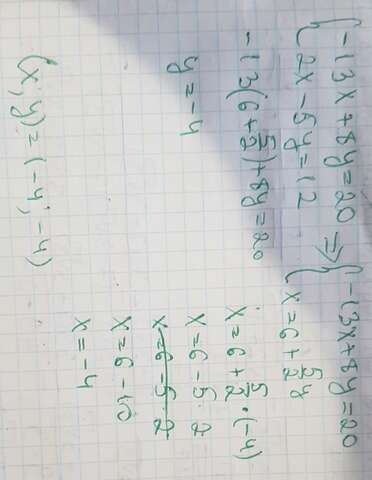 {-13x+8y=20 ⇒ {-13x+8y=20
{2x-5y=12 {x=6+5/2y
-13(6+5/2)+8y=20
y=-4
x=6+5/2·(-4)
x=6-5·2
x=6-5·2
x=6-10
x=-4
(x,y)=(-4,-4)